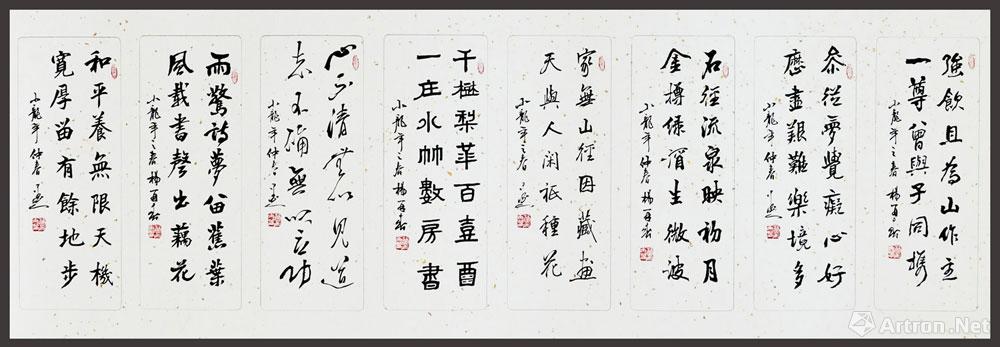 強飲且為山作主
一尊曾與子同携
小龍年之春 楊
恭從夢覺癡心好
歷盡艱難樂境多
小龍年仲春
石徑流泉映初月
金樽綠酒生微波
小龍年仲春 楊
家無山徑因藏畫
天與人閑祇種花
小龍年之春
千樹梨華百壺酒
一庄水竹數房書
小龍年之春 楊
心不清無以見道
志不確無以立功
小龍年仲春
雨驚詩夢留蕉葉
風載書聲出藕花
小龍年之春 楊
和平養無限天機
寬厚留有餘地步
小龍年仲春
Artron.Net